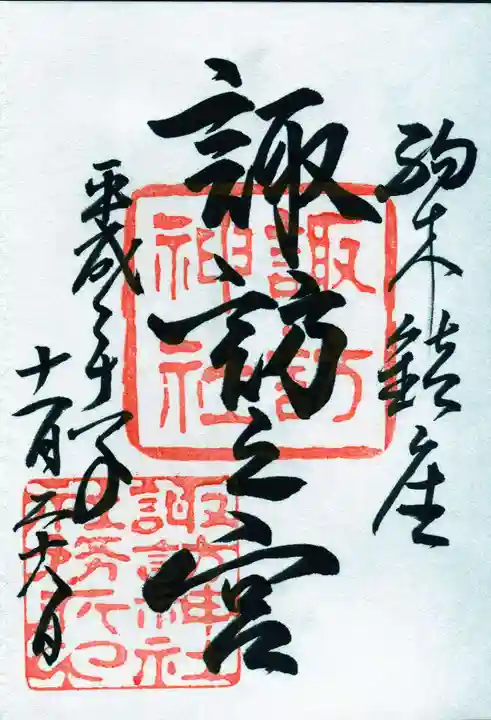 駒木鎮座
諏訪之宮
諏訪
神社
平成二十年子
十一月二十六日
諏訪神社
社務所印